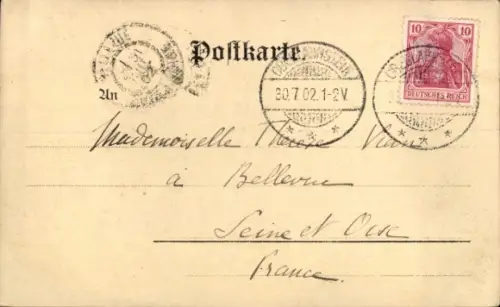 Postkarte.
10 10
DEUTSCHES REICH
30.7.02.1-2V.
An
Mademoiselle Thérèse
à Bellevue
Seine et Oise
France.